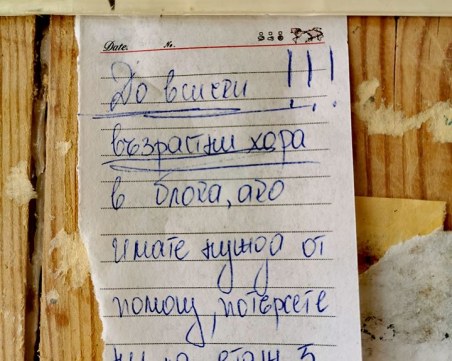 Date. Nr.
До всички !!!
възрастни хора
в блока, ако
имате нужда от
помощ, потърсете
ни на етаж 5